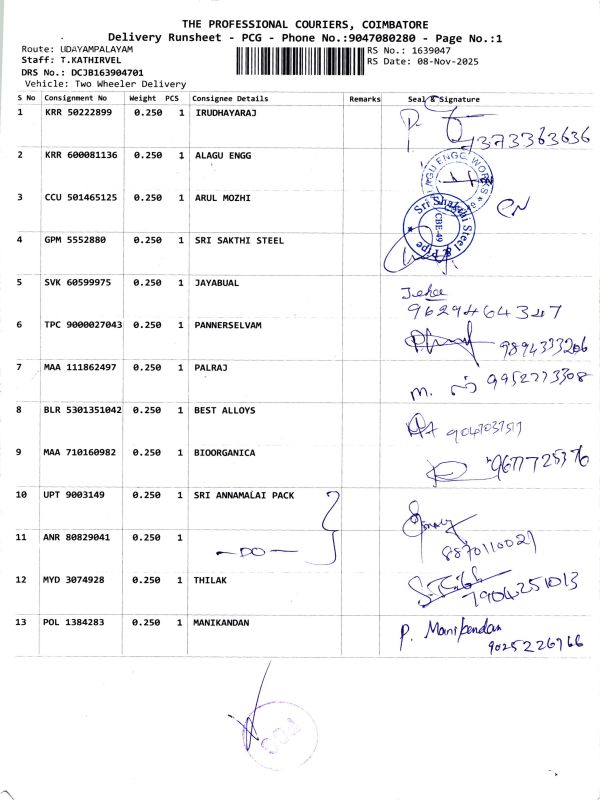 THE PROFESSIONAL COURIERS, COIMBATORE
Delivery Runsheet - PCG - Phone No.:9047080280 - Page No.:1
Route: UDAYAMPALAYAM
RS No.: 1639047
Staff: T.KATHIRVEL
RS Date: 08-Nov-2025
DRS No.: DCJB163904701
Vehicle: Two Wheeler Delivery
S No Consignment No Weight PCS Consignee Details Remarks Seal & Signature
1 KRR 50222899 0.250 1 IRUDHAYARAJ
2 KRR 600081136 0.250 1 ALAGU ENGG
3 CCU 501465125 0.250 1 ARUL MOZHI
Sri Shakthi Steel & Pipe
CBE-49
4 GPM 5552880 0.250 1 SRI SAKTHI STEEL
5 SVK 60599975 0.250 1 JAYABUAL
9629464347
6 TPC 9000027043 0.250 1 PANNERSELVAM
9894333206
7 MAA 111862497 0.250 1 PALRAJ
9952773308
8 BLR 5301351042 0.250 1 BEST ALLOYS
9 MAA 710160982 0.250 1 BIOORGANICA
9677725376
10 UPT 9003149 0.250 1 SRI ANNAMALAI PACK
11 ANR 80829041 0.250 1 —DO—
8870110021
12 MYD 3074928 0.250 1 THILAK
7904251013
13 POL 1384283 0.250 1 MANIKANDAN P. Manikandan
9025226766
POD